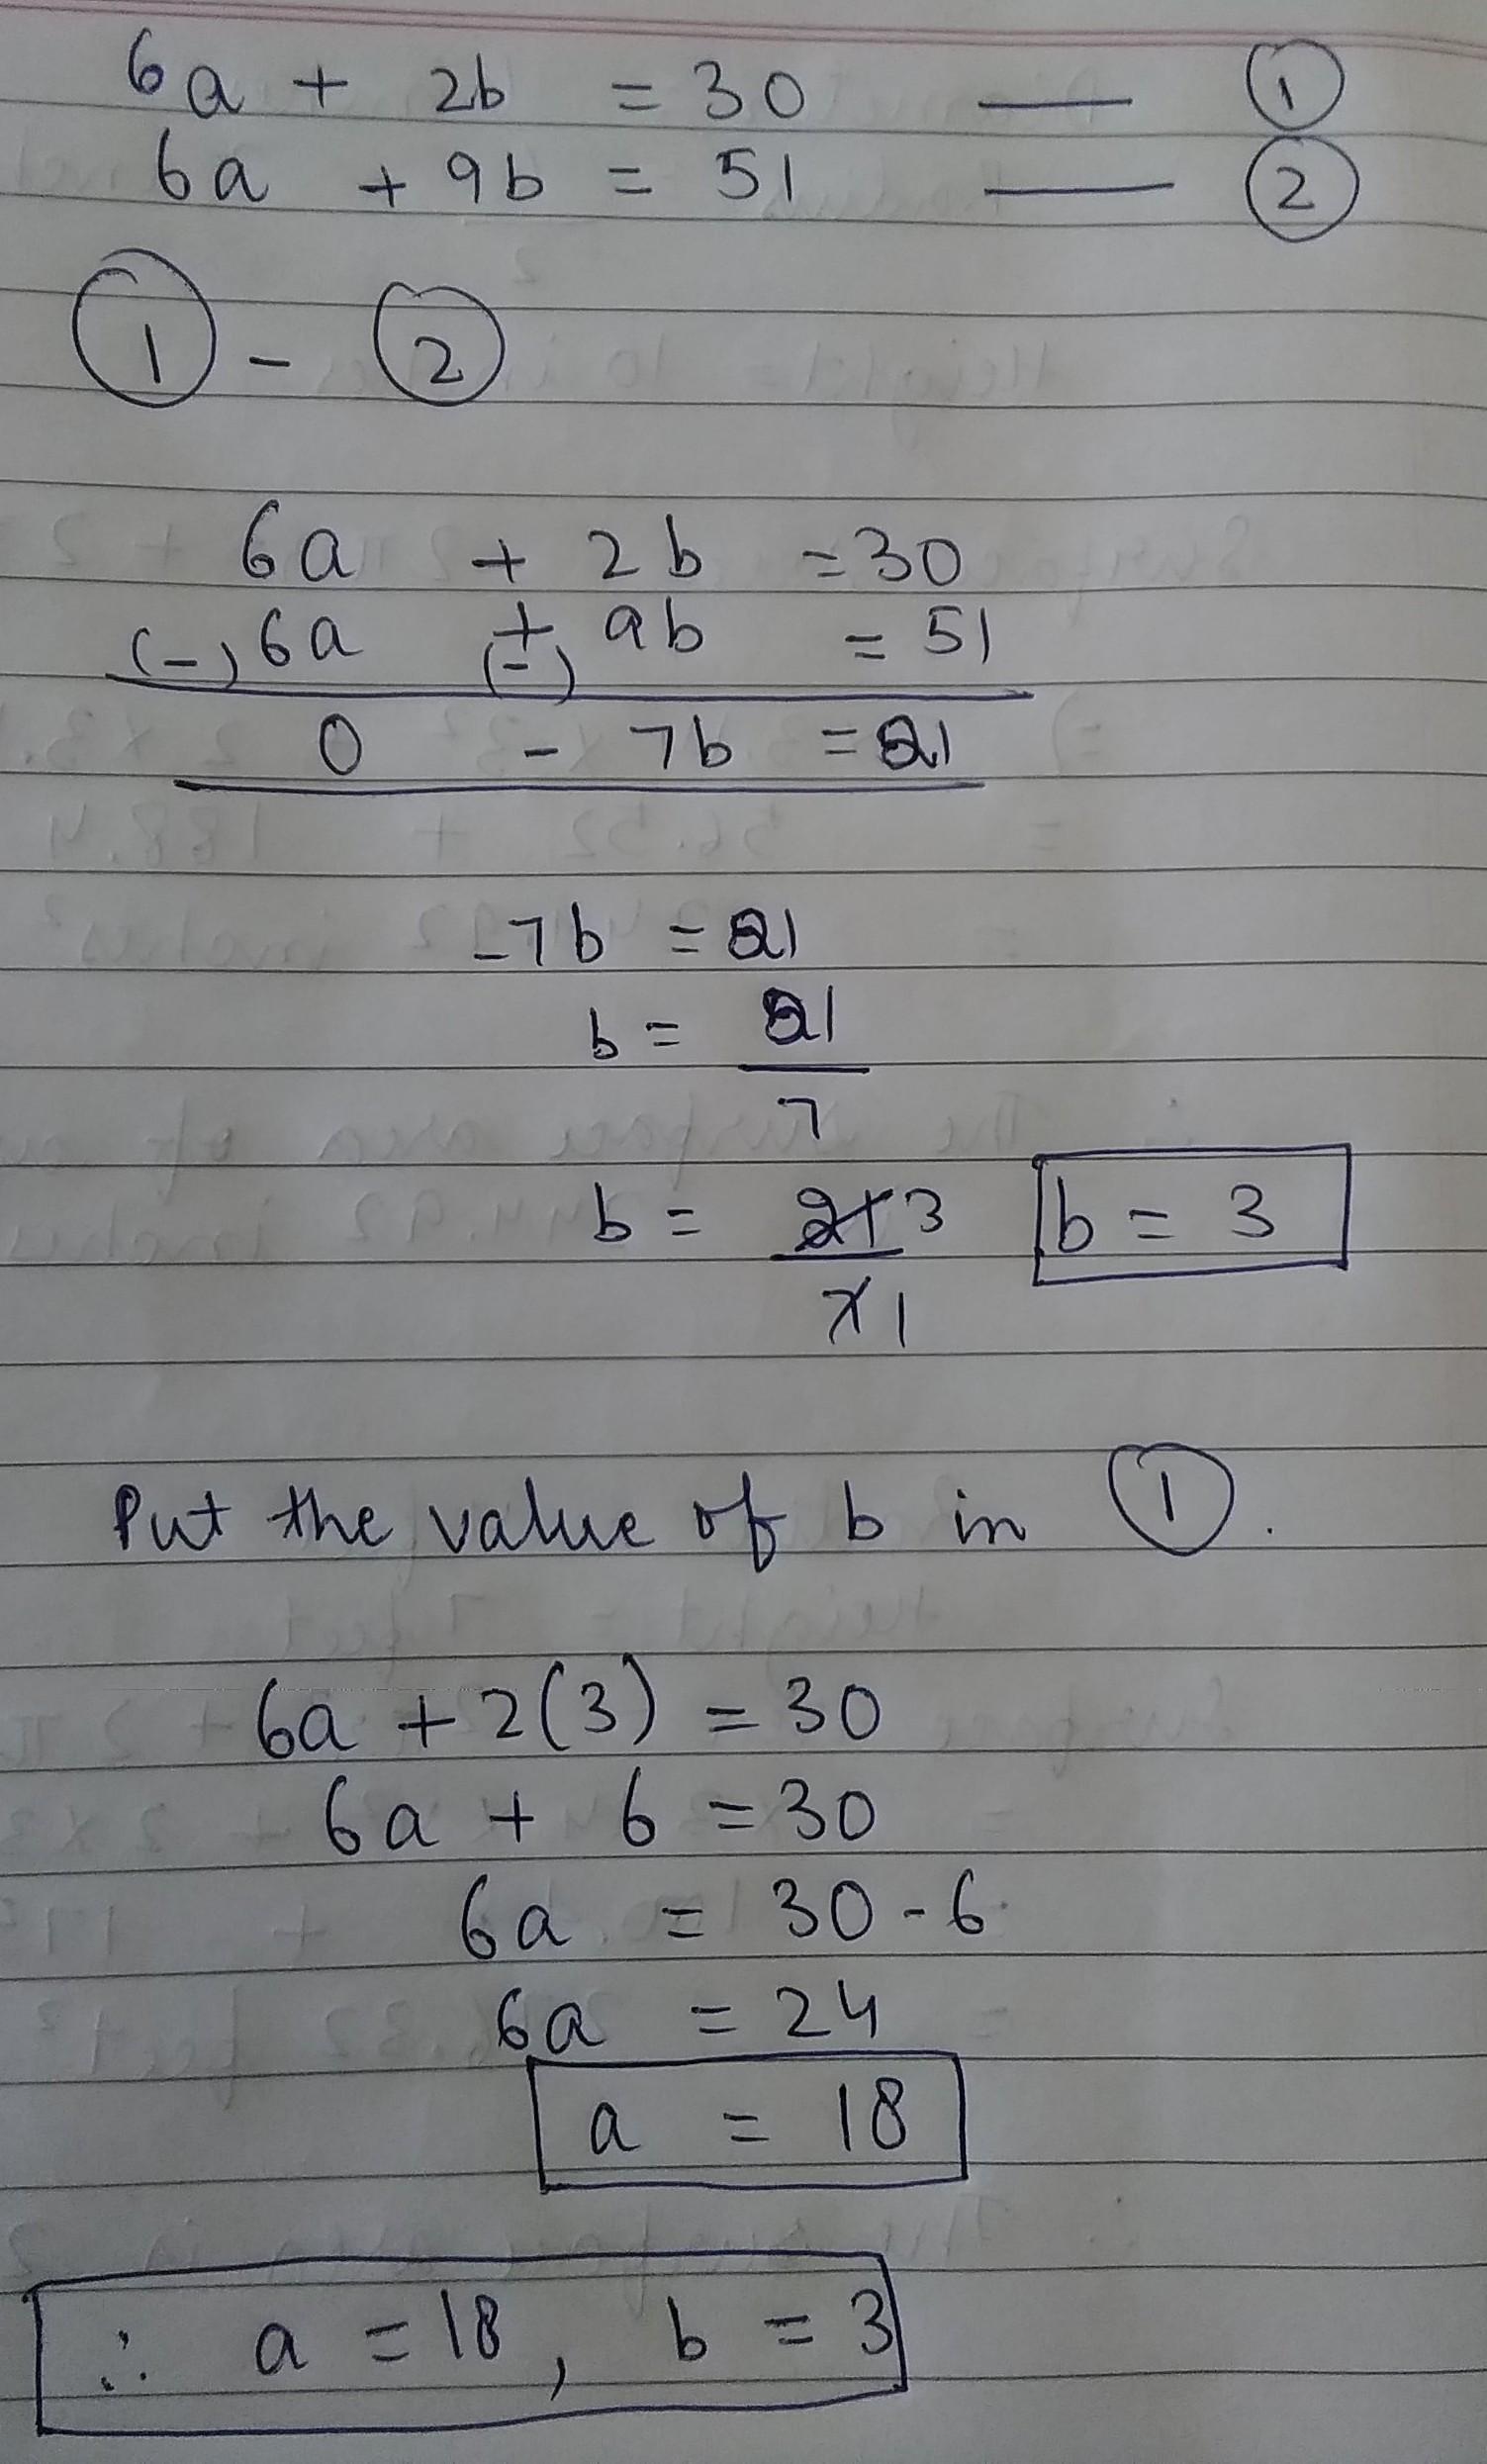 6a + 2b = 30 — ①
6a + 9b = 51 — ②
① - ②
6a + 2b = 30
(-) 6a + (-) 9b = 51
0 - 7b = 21
-7b = 21
b = 21/7
b = 21 3/7 1 b = 3
Put the value of b in ①.
6a + 2(3) = 30
6a + 6 = 30
6a = 30 - 6
6a = 24
a = 18
∴ a = 18, b = 3